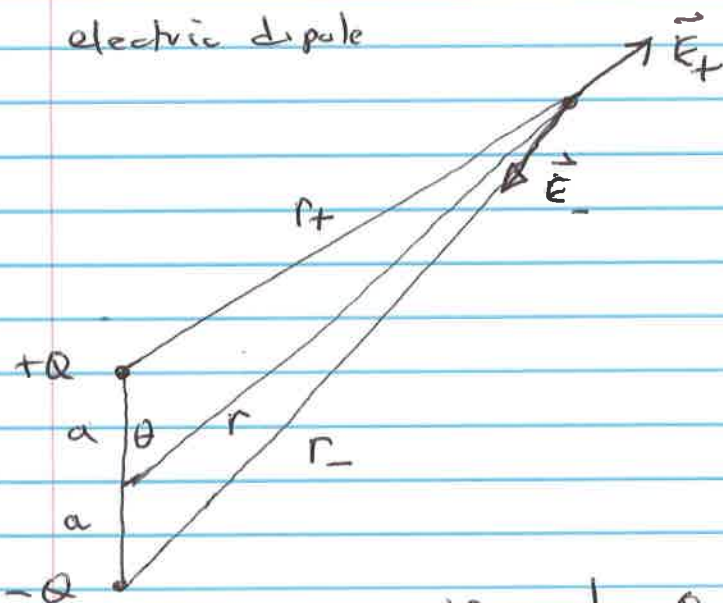 electric dipole
E⃗₊
E⃗₋
r₊
+Q
a θ r
r₋
a
-Q